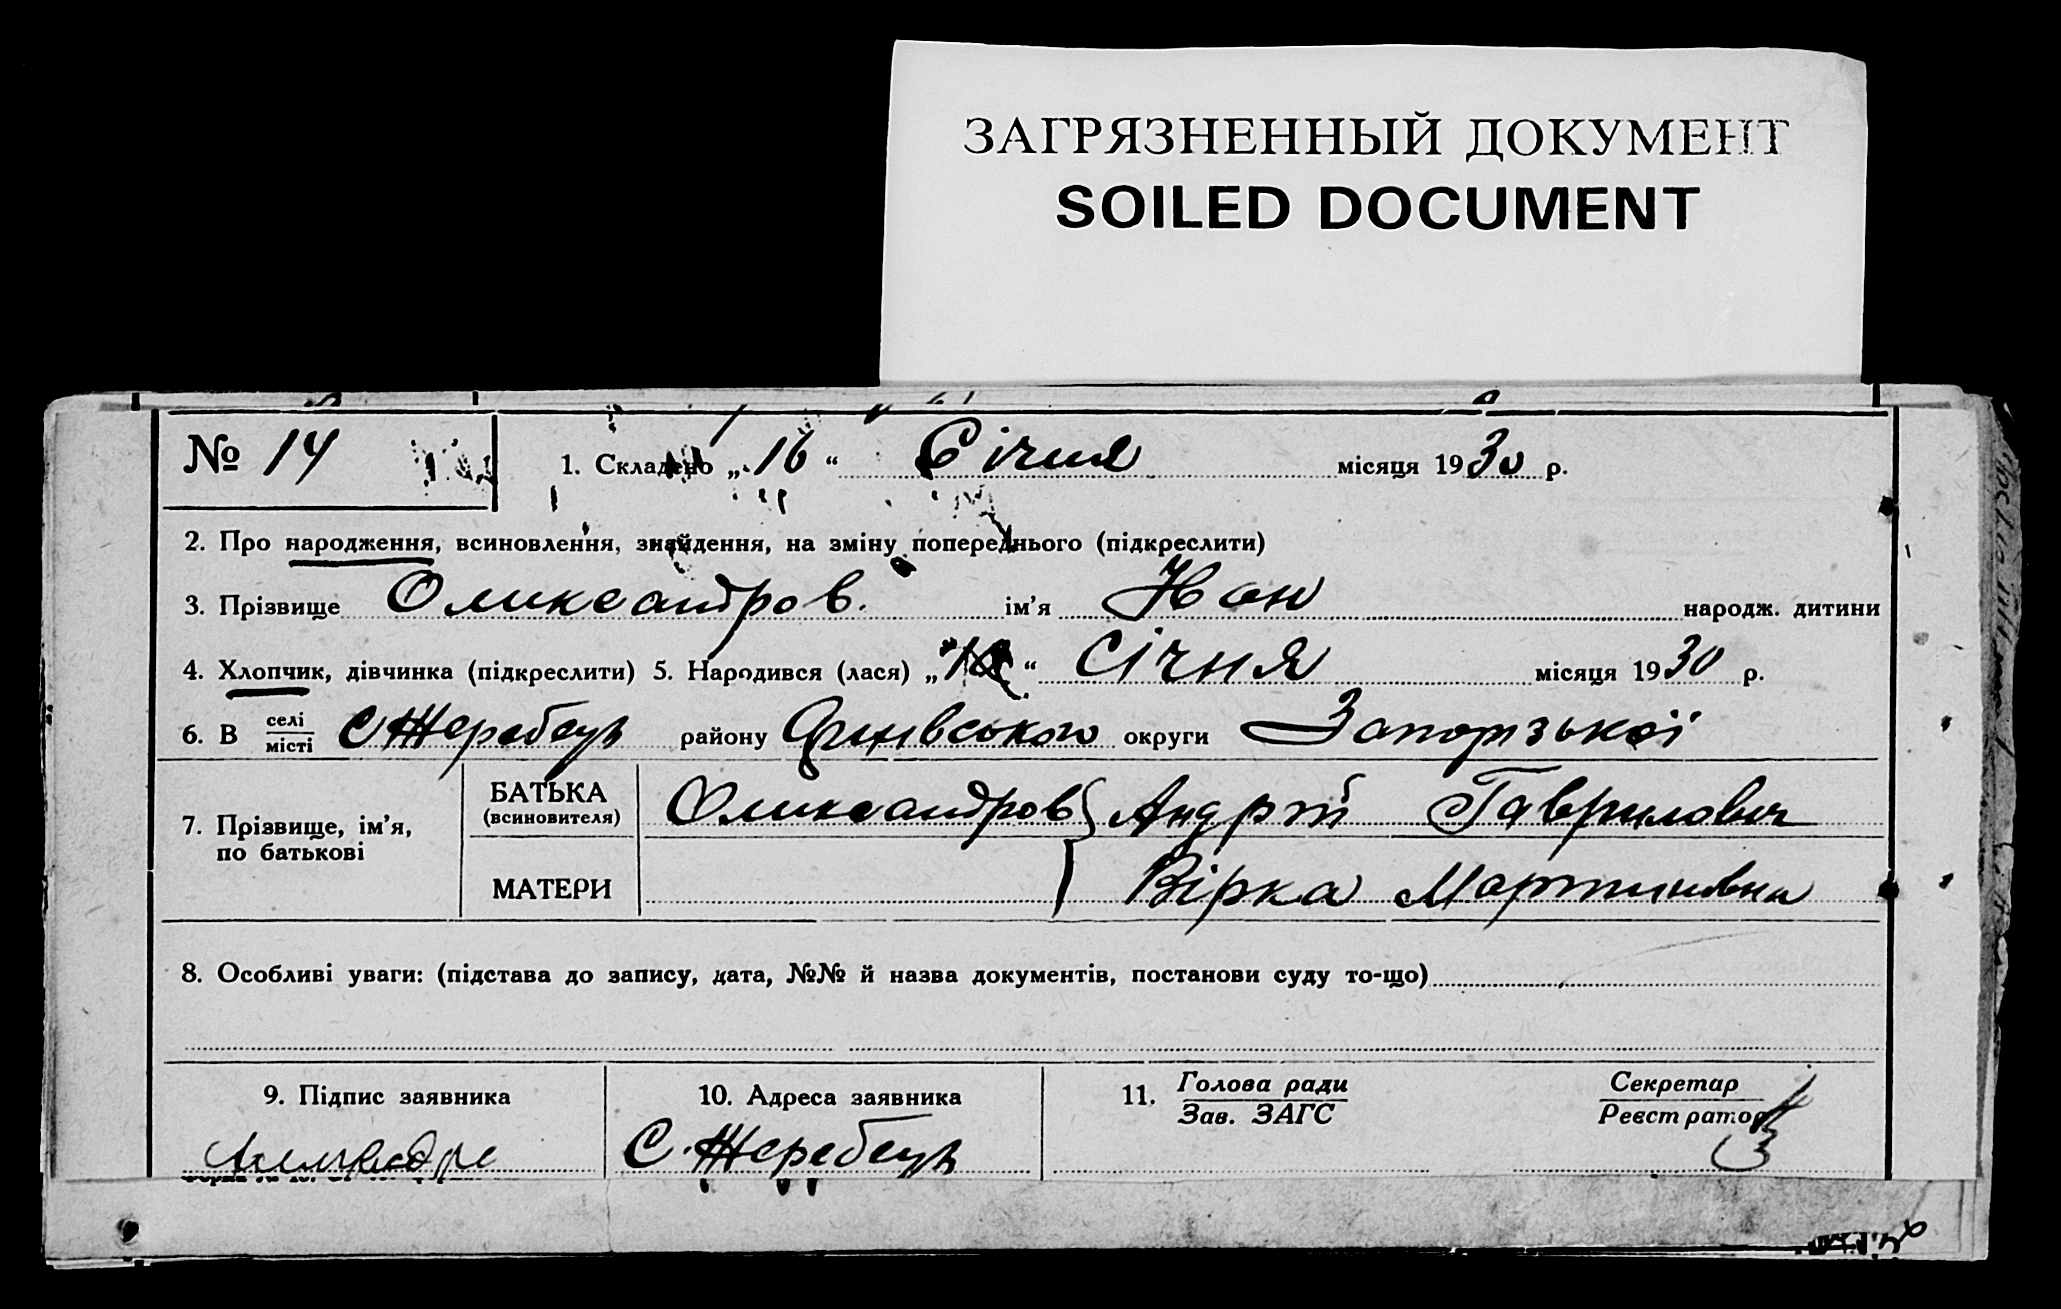 ЗАГРЯЗНЕННЫЙ ДОКУМЕНТ
SOILED DOCUMENT
№ 14
1. Складено „ 16 “ Січня місяця 1930 р.
2. Про народження, всиновлення, знайдення, на зміну попереднього (підкреслити)
3. Прізвище Олександров. ім’я народж. дитини
4. Хлопчик, дівчинка (підкреслити) 5. Народився (лася) „ “ Січня місяця 1930 р.
6. В селі місті С Жеребець району округи Запорізької
7. Прізвище, ім’я, по батькові
БАТЬКА (всиновителя) Олександров Андрій Гаврилович
МАТЕРИ Вірка Мартиновна
8. Особливі уваги: (підстава до запису, дата, №№ й назва документів, постанови суду то-що)
9. Підпис заявника
10. Адреса заявника
С. Жеребець
11. Голова ради
Зав. ЗАГС
Секретар
Реєстратор